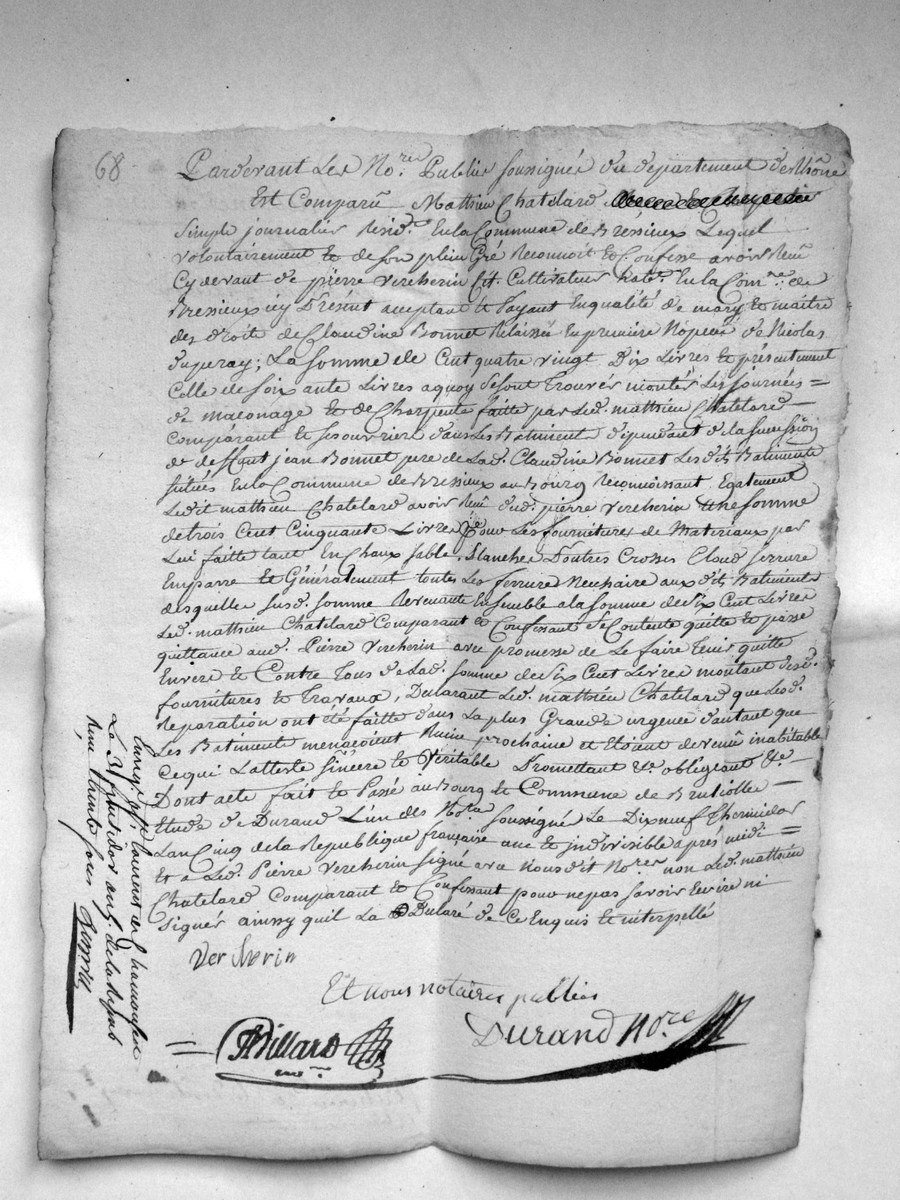 68
Pardevant Les No.res Publics soussignés du département du Rhône
Est Comparu Mathieu Chatelard
Simple journalier Resid.t En la Commune de Bressieux Lequel
volontairement & de son plein Gré Reconnoit & Confesse avoir Reçu
Cy devant de pierre vercherin fit. Cultivateur hab.t En la Com.ne de
Bressieux icy Présent acceptant & Payant En qualité de mary & maitre
des droits de Claudine Bonnet Relaissée En première Nôpces de Nicolas
Duperay; La somme de Cent quatre vingt Dix Livres & présentement
Celle de soixante Livres aquoy se sont trouvés montés Les journées =
de maconage & de Charpente faitte par Led. mathieu Chatelard
Comparant & ses ouvriers dans Les Batiments dépendant de la succession
de deffunt jean Bonnet pere de Lad. Claudine Bonnet Lesdits Batiments
situés En la Commune de Bressieux au Bourg Reconnoissant Egalement
Ledit mathieu Chatelard avoir Reçu dud. pierre vercherin Une somme
de trois Cent Cinquante Livres Pour Les fournitures de Materiaux par
Lui faitte tant En Chaux sable, Planches Poutres Crosses Cloud serrure
Emparre & Généralement toutes Les ferrures Necessaire aux dits Batiments
desquelles susd. somme Revenante Ensemble a la somme de Six Cent Livres
Led. mathieu Chatelard Comparant & Confissant se Contente quitte & passe
quittance aud. Pierre vercherin avec promesse de Le faire tenir quitte
Envers & Contre Tous de Lad. somme de Six Cent Livres montant desd.
fournitures & Travaux, Declarant Led. mathieu Chatelard que Lesd.
Reparation ont été faitte dans La plus Grande urgence d'autant que
Les Batiments menaçoient Ruine prochaine et étoient devenu inabitable
Cequi Latteste sincere & Véritable Promettant &a obligeant &a
Dont acte fait & Passé au Bourg & Commune de Brullolle
Etude de Durand L'un des No.res soussigné Le Dix neuf Thermidor
L'an Cinq de la Republique française une & indivisible après midi =
Et a Led. Pierre Vercherin signé avec Nous dit No.res non Led. mathieu
Chatelard Comparant & Confissant pour ne pas savoir Ecrire ni
signer ainssy quil La Déclaré de Ce Enquis & interpellé
Vercherin
Et nous notaires publics
Billard
Durand No.re
Enreg. p.r laurent en l'honoraire
Le 3 fructidor an 5. de la Repub
Reçu trente sous